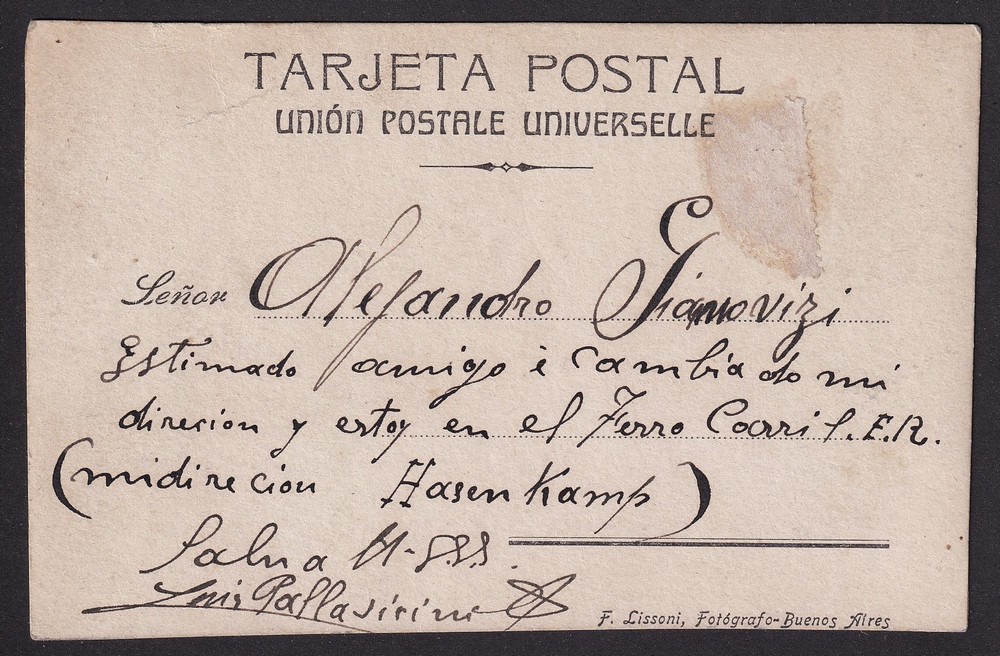 TARJETA POSTAL
UNIÓN POSTALE UNIVERSELLE
Señor Alejandro Gianovizi
Estimado amigo è cambiado mi
direcion y estoy en el Ferro Carril. E.R.
(mi direcion Hasenkamp)
Salu a
Luis Pallavicini
F. Lissoni, Fotógrafo-Buenos Aires